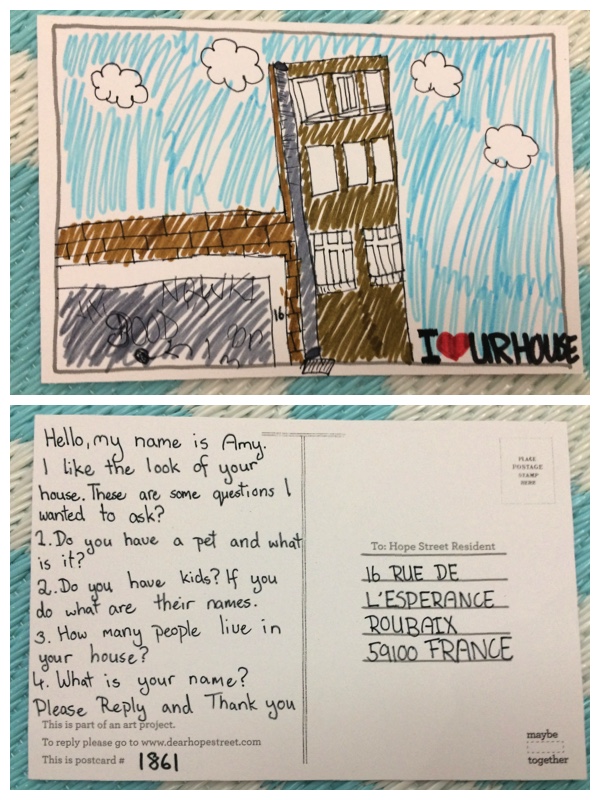 16
I ❤ UR HOUSE
Hello, my name is Amy.
I like the look of your
house. These are some questions I
wanted to ask?
1. Do you have a pet and what
is it?
2. Do you have kids? If you
do what are their names.
3. How many people live in
your house?
4. What is your name?
Please Reply and Thank you
This is part of an art project.
To reply please go to www.dearhopestreet.com
This is postcard # 1861
PLACE
POSTAGE
STAMP
HERE
To: Hope Street Resident
16 RUE DE
L'ESPERANCE
ROUBAIX
59100 FRANCE
maybe
together